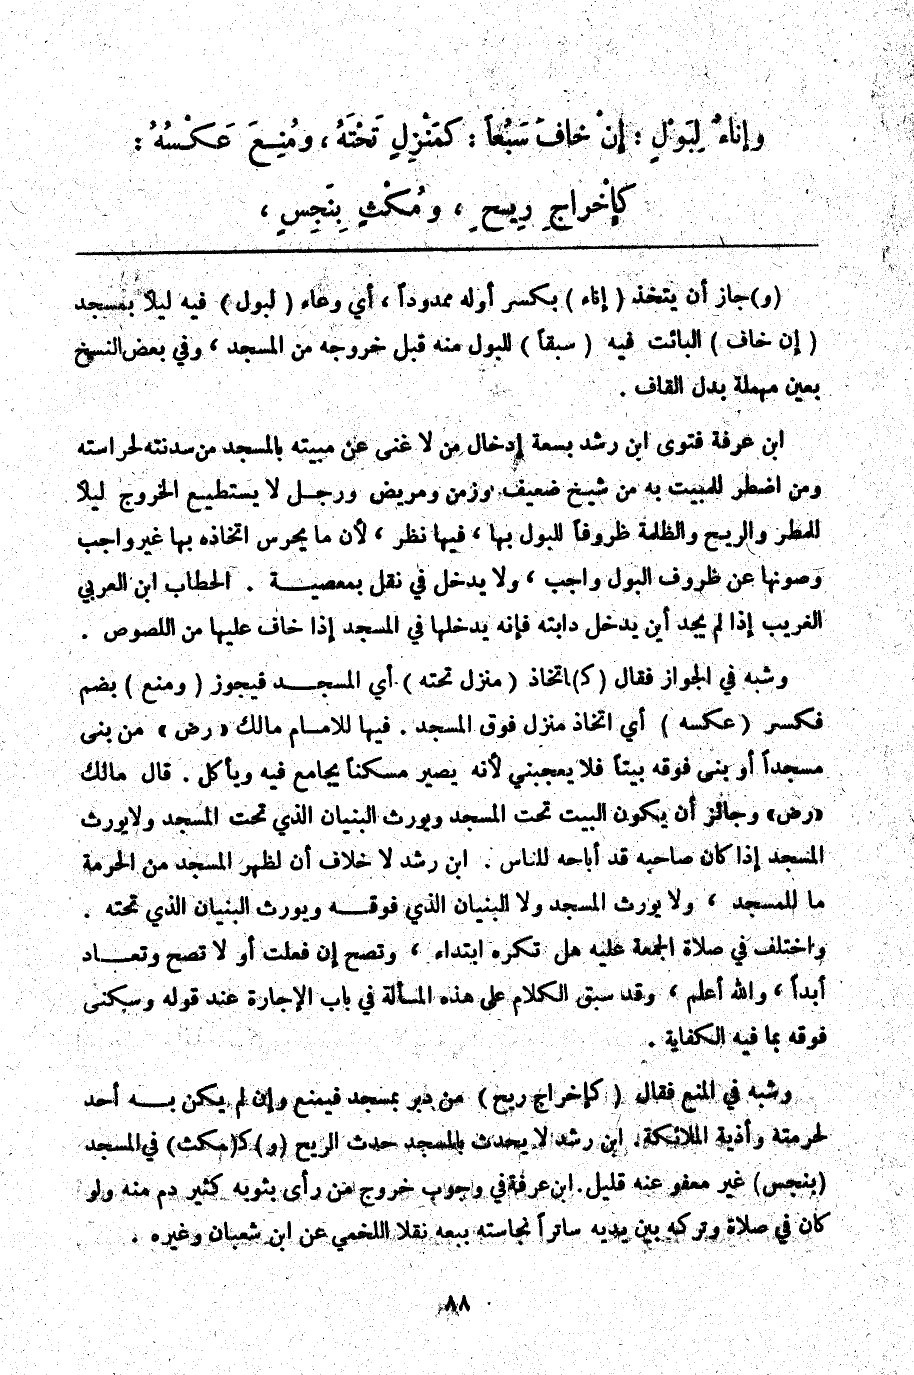 وإناءٌ لِبَوْلٍ : إنْ خافَ سَبُعاً : كمَنْزِلٍ تَحْتَهُ ، ومُنِعَ عَكْسُهُ :
كإخْراجِ رِيحٍ ، ومُكْثٍ بِنَجِسٍ ،
(و)جاز أن يتخذ ( إناء ) بكسر أوله ممدوداً ، أي وعاء ( لبول ) فيه ليلا بمسجد
( إن خاف ) البائت فيه ( سبقاً ) للبول منه قبل خروجه من المسجد ، وفي بعض النسخ
بعين مهملة بدل القاف .
ابن عرفة فتوى ابن رشد بسعة إدخال من لا غنى عن مبيته بالمسجد من سدنته لحراسته
ومن اضطر للمبيت به من شيخ ضعيف وزمن ومريض ورجل لا يستطيع الخروج ليلا
للمطر والريح والظلمة ظروفاً للبول بها ، فيها نظر ، لأن ما يحرس اتخاذه بها غير واجب
وصونها عن ظروف البول واجب ، ولا يدخل في نقل بمعصية . الحطاب ابن العربي
الغريب إذا لم يجد أين يدخل دابته فإنه يدخلها في المسجد إذا خاف عليها من اللصوص .
وشبه في الجواز فقال ( كـ)اتخاذ ( منزل تحته ) أي المسجد فيجوز ( ومنع ) بضم
فكسر ( عكسه ) أي اتخاذ منزل فوق المسجد . فيها للامام مالك « رض » من بنى
مسجداً أو بنى فوقه بيتاً فلا يعجبني لأنه يصير مسكناً يجامع فيه ويأكل . قال مالك
«رض» وجائز أن يكون البيت تحت المسجد ويورث البنيان الذي تحت المسجد ولا يورث
المسجد إذا كان صاحبه قد أباحه للناس . ابن رشد لا خلاف أن لظهر المسجد من الحرمة
ما للمسجد ، ولا يورث المسجد ولا البنيان الذي فوقه ويورث البنيان الذي تحته .
واختلف في صلاة الجمعة عليه هل تكره ابتداء ، وتصح إن فعلت أو لا تصح وتعاد
أبداً ، والله أعلم ، وقد سبق الكلام على هذه المسألة في باب الإجارة عند قوله وسكنى
فوقه بما فيه الكفاية .
وشبه في المنع فقال ( كإخراج ريح ) من دبر بمسجد فيمنع وإن لم يكن به أحد
لحرمته وأذية الملائكة . ابن رشد لا يحدث بالمسجد حدث الريح (و) كـ(مكث) في المسجد
(بنجس) غير معفو عنه قليل . ابن عرفة في وجوب خروج من رأى بثوبه كثير دم منه ولو
كان في صلاة وتركه بين يديه ساتراً نجاسته ببعه نقلا اللخمي عن ابن شعبان وغيره .
٨٨